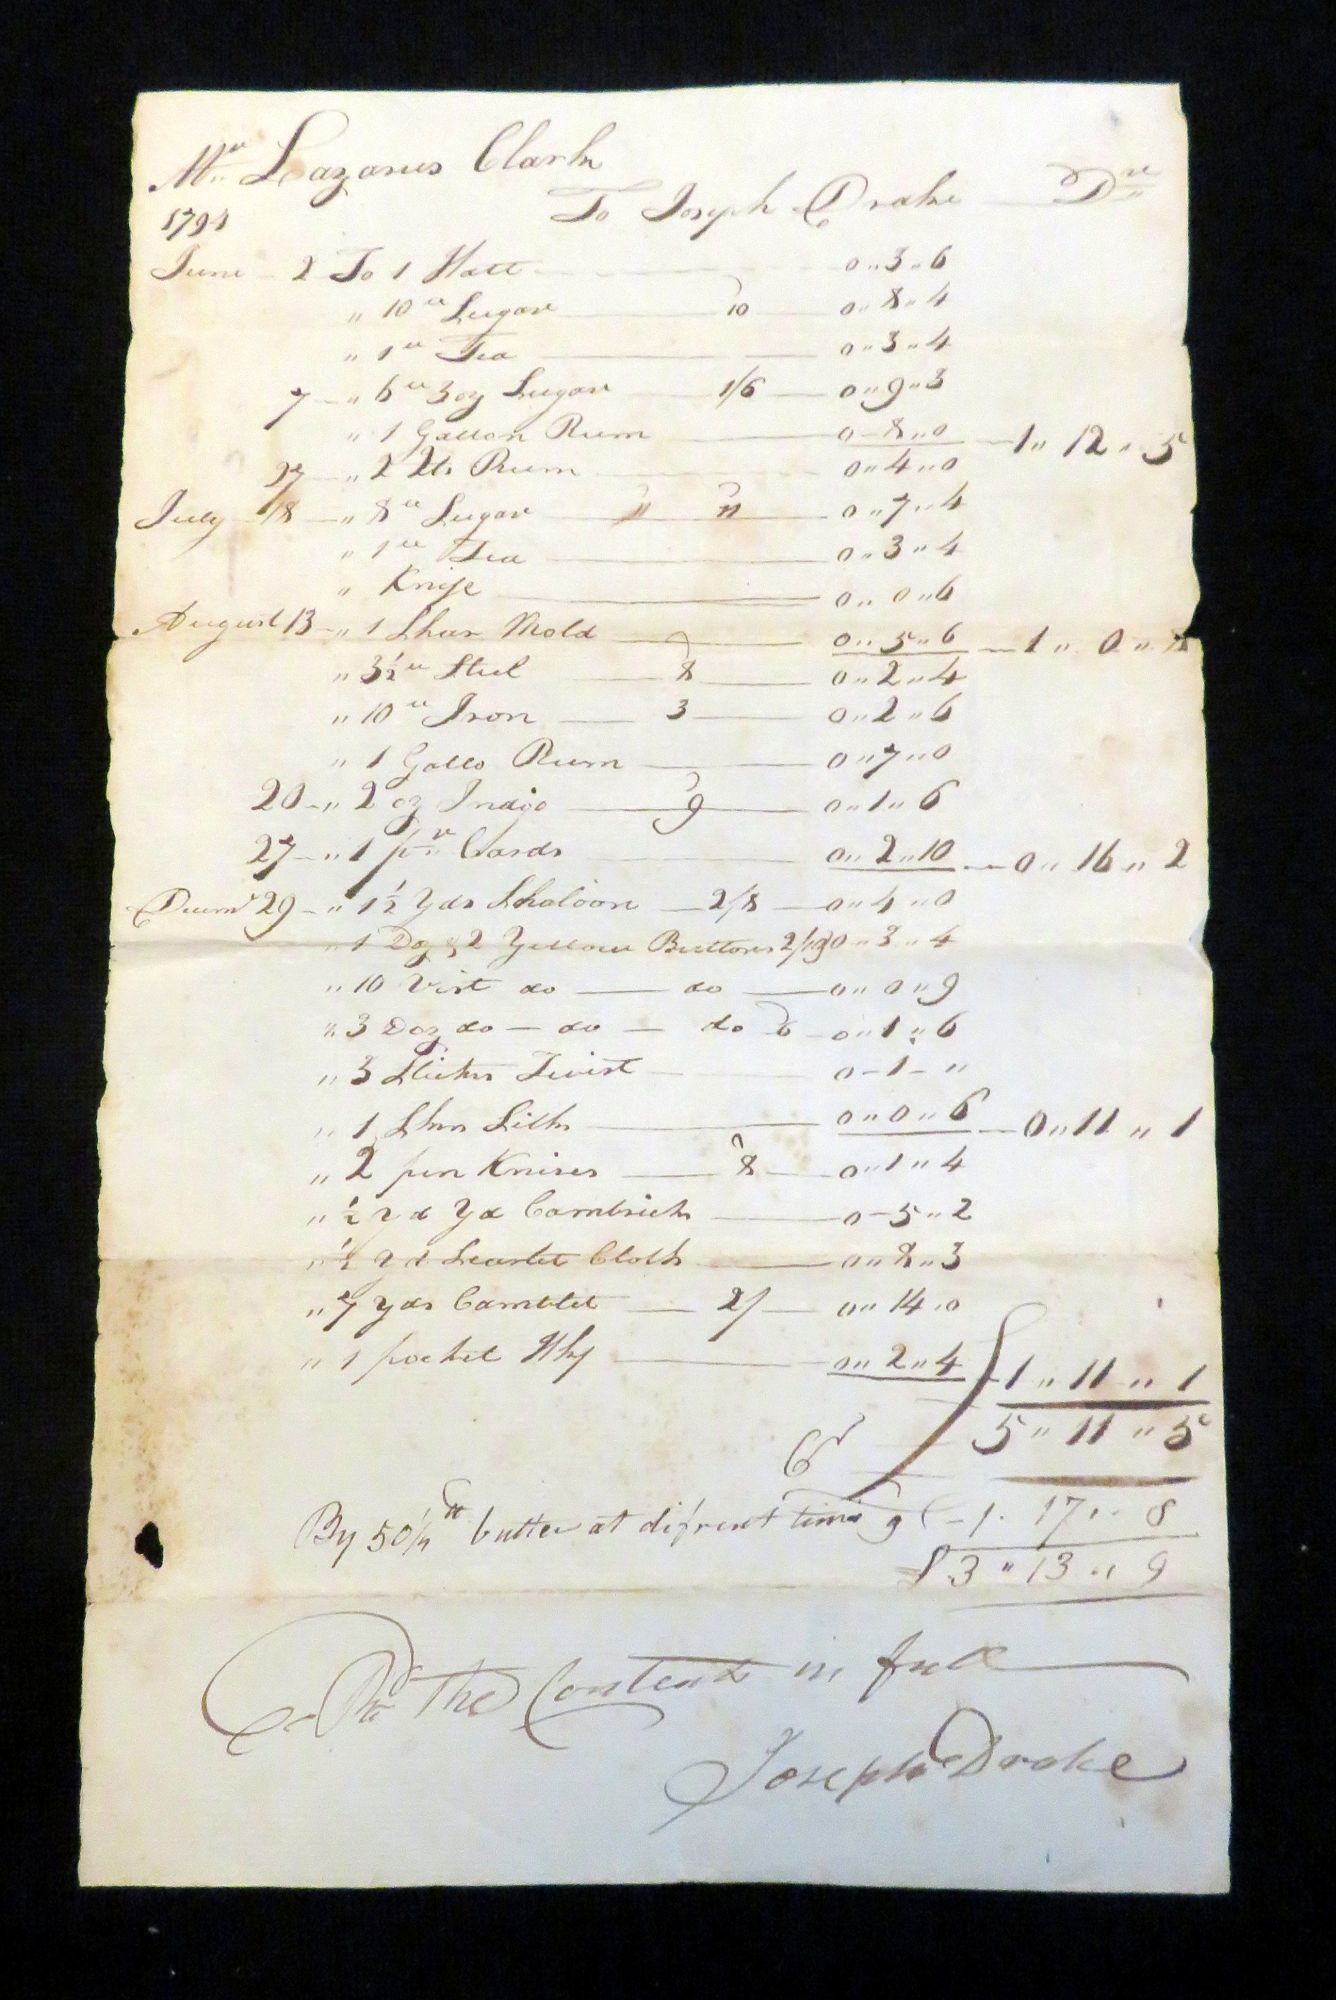 Mr Lazarus Clark
To Joseph Drake Dr
1794
June 2 To 1 Hatt 0,,3,,6
,, 10 ll Sugar 10 0,,8,,4
,, 1 ll Tea 0,,3,,4
7 ,, 6 ll 3 oz Sugar 1/6 0,,9,,3
,, 1 Gallon Rum 0-8,,0 1,,12,,5
27 ,, 2 Qts Rum 0,,4,,0
July 18 ,, 8 ll Sugar 11 0,,7,,4
,, 1 ll Tea 0,,3,,4
,, Knife 0,,0,,6
August 13 ,, 1 Shar Mold 0,,5,,6 1,,0,,8
,, 3½ ll Steel 8 0,,2,,4
,, 10 ll Iron 3 0,,2,,6
,, 1 Gallo Rum 0,,7,,0
20 ,, 2 oz Indigo 9 0,,1,,6
27 ,, 1 pr Cards 0,,2,,10 0,,16,,2
Decmr 29 ,, 1½ Yds Shaloon 2/8 0,,4,,0
,, 1 Doz & 2 Yellow Buttons 2/10 0,,3,,4
,, 10 Vist do do 0,,0,,9
,, 3 Doz do - do - do 6 0,,1,,6
,, 3 Sticks Twist 0-1-,,
,, 1 Shn Silk 0,,0,,6 0,,11,,1
,, 2 pen Knives 8 0,,1,,4
,, ½ Yd Yd Cambrick 0-5,,2
,, ½ Yd Scarlet Cloth 0,,8,,3
,, 7 Yds Camblet 2/ 0,,14,,0
,, 1 pocket Hkf 0,,2,,4 1,,11,,1
5,,11,,5
Cr
By 50¼ tt butter at difrent time 9 1. 17,, 8
£3,,13,,9
Rd The Contents in full
Joseph Drake